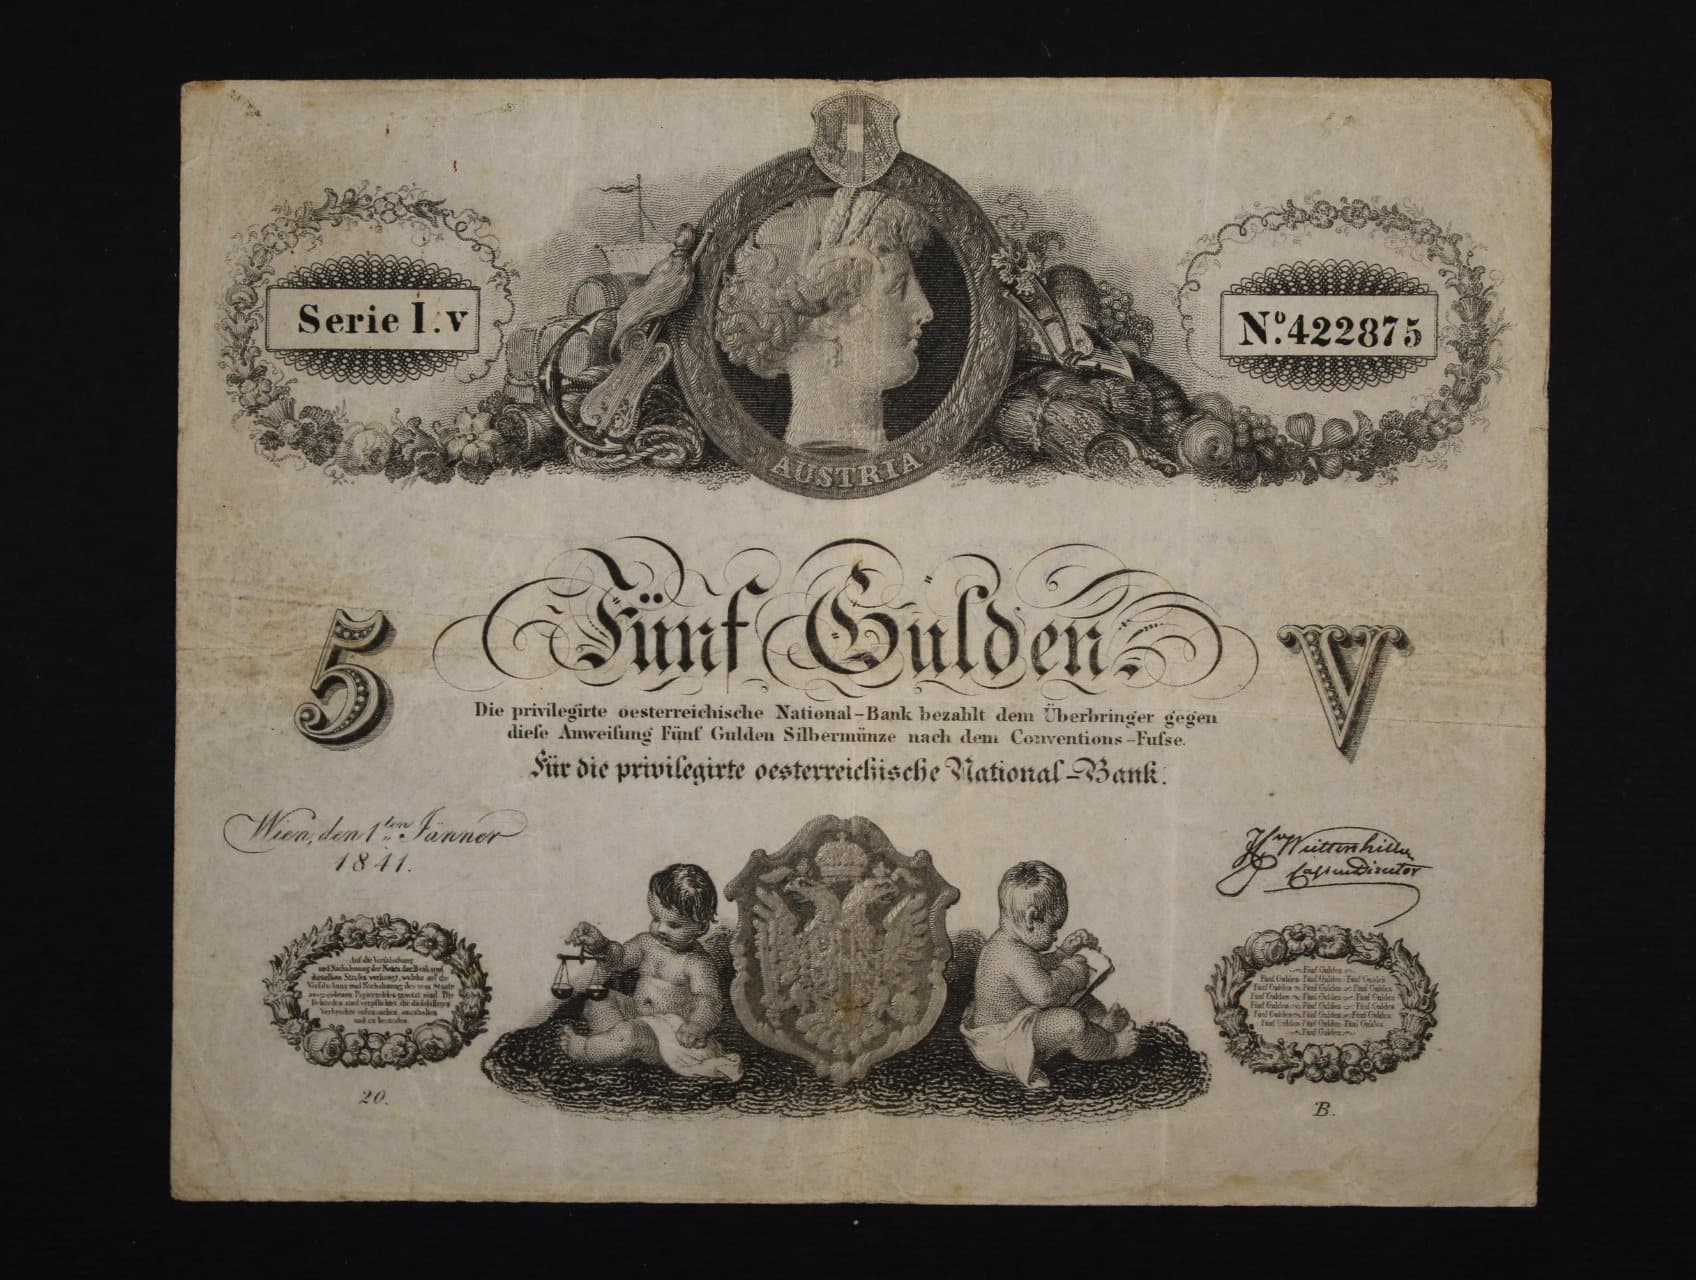 Serie I.v
Nº.422875
AUSTRIA
Fünf Gulden.
5
V
Die privilegirte oesterreichische National-Bank bezahlt dem Überbringer gegen
diese Anweisung Fünf Gulden Silbermünze nach dem Conventions-Fuſse.
Für die privilegirte oesterreichische National-Bank.
Wien, den 1ten Jänner
1841.
Cassen Director
Auf die Verfälschung
und Nachahmung der Noten der Bank sind
dieselben Strafen verhängt, welche auf die
Verfälschung und Nachahmung des vom Staate
ausgegebenen Papiergeldes gesetzt sind. Die
Behörden sind verpflichtet, die dießfälligen
Verbrecher aufzusuchen, anzuhalten
und zu bestrafen.
Fünf Gulden
Fünf Gulden Fünf Gulden Fünf Gulden
Fünf Gulden Fünf Gulden Fünf Gulden
Fünf Gulden Fünf Gulden Fünf Gulden
Fünf Gulden Fünf Gulden Fünf Gulden
Fünf Gulden Fünf Gulden Fünf Gulden
Fünf Gulden Fünf Gulden Fünf Gulden
Fünf Gulden
20.
B.